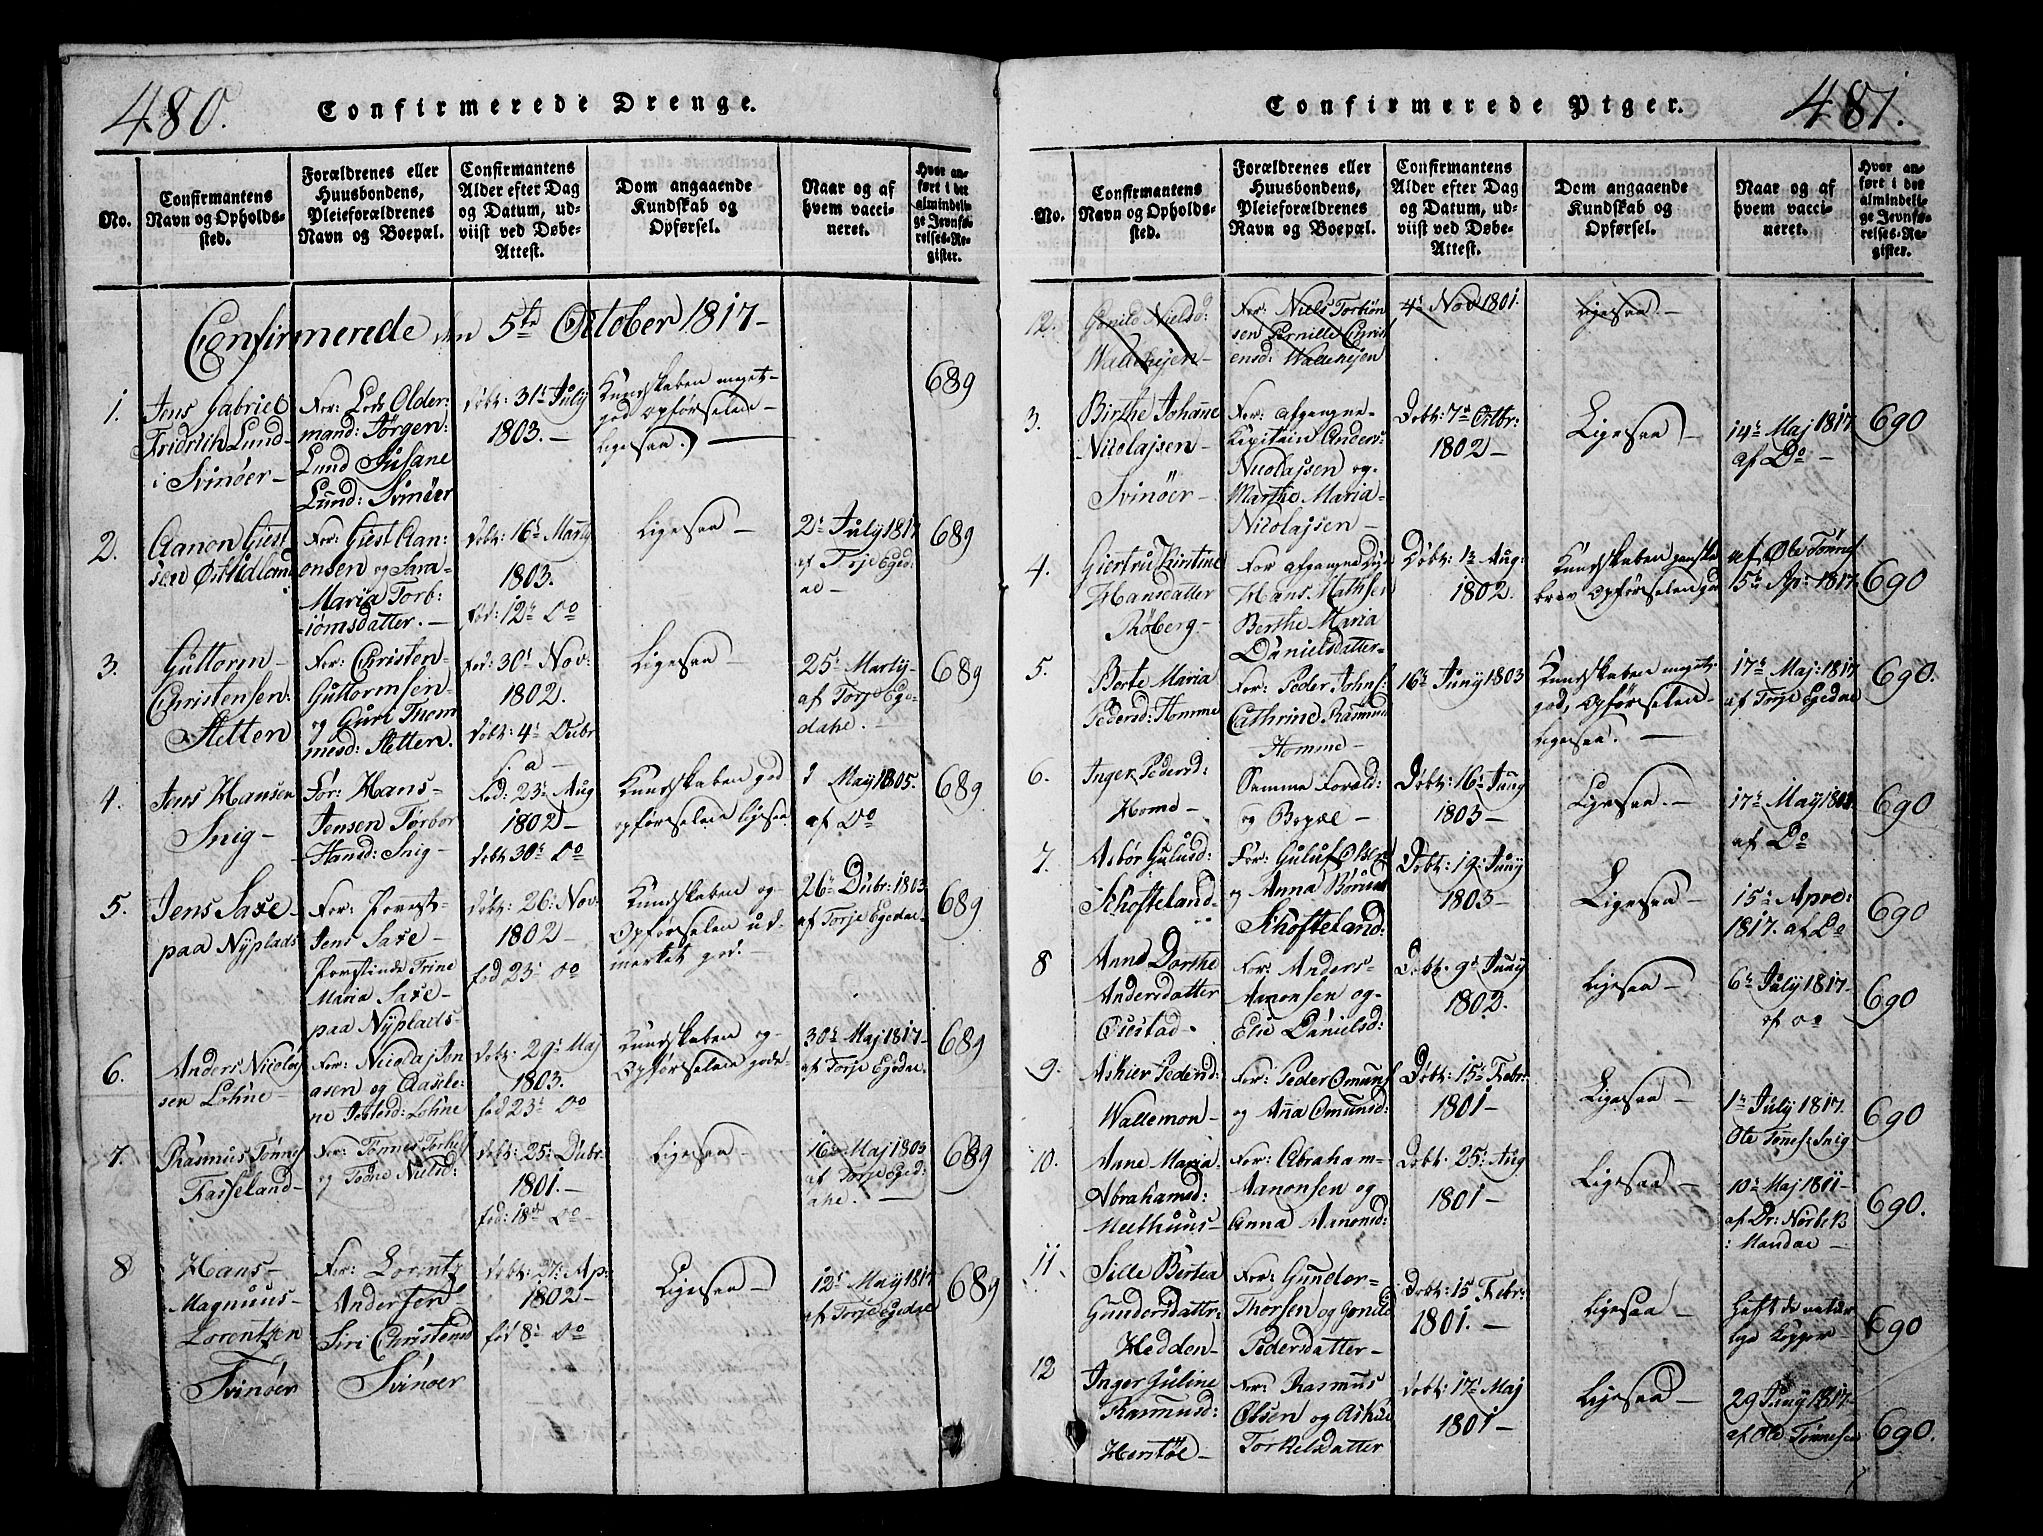 480.
Confirmerede Drenge.
No.
Confirmantens
Navn og Opholds-
sted.
Forældrenes eller
Huusbondens,
Pleieforældrenes
Navn og Boepæl.
Confirmantens
Alder efter Dag
og Datum, ud-
viist ved Døbe-
Attest.
Dom angaaende
Kundskab og
Opførsel.
Naar og af
hvem vacci-
neret.
Hvor an-
ført i det
almindeli-
ge Jevnfø-
relses-Re-
gister.
Confirmerede den 5te October 1817-
1.
Jens Gabriel
Fridrich Lund-
i Svinøer-
For: Lods Older:
mand: Jørgen:
Lund Susane
Lund: Svinøer
døbt: 31t July
1803.-
Kundskaben meget-
god Opførselen-
ligesaa.
689
2.
Aanon Giest
sen Østudland
For: Giest Aan-
onsen og Sara-
Maria Torb-
iømsdatter.
døbt: 16t Marty
1803.
fød: 12t do
Ligesaa
2t July 1817
af Torje Eged
al-
689
3.
Guttorm-
Christensen:
Stetten
For: Christen-
Guttormsen-
og Guri Thom
mesd: Stetten.
fød: 30t Nov:
1802.
døbt: 4t Dcbr
s. a-
Ligesaa
25t Marty-
af Torje Ege-
dahe.-
689
4.
Jens Hansen
Snig-
For: Hans-
Jensen Torbor
Hansd: Snig-
fød: 23t Aug
1802-
døbt 30t do
Kundskaben god
opførselen ligesaa
May 1805.
af do
689
5.
Jens Saxe-
paa Nyplads
For: Provst-
Jens Saxe-
Provstinde Trine
Maria Saxe-
paa Nyplads-
døbt: 26t Nov-
1802-
fød 23t do
Kundskaben og
Opførselen ud-
mærket god.
26t Dcbr: 1803
af Torje Egedae-
689
6.
Anders Nicolay
sen Lohne-
For: Nicolaj Jen
døbt: 29t Maj
1803.
fød 23t do
Kundskaben og-
Opførselen gode-
30t Maj 1817-
af Torje Egedae.
689
7.
Rasmus Tønnes
For: Tønnes
døbt: 25t Dcbr
1801.-
fød: 18de do-
Ligesaa
16t Maj 1803
af Torje Eged:
ahe.
689
8
Hans-
Magnuus-
Lorentzen
Svinøer
For: Lorentz
Andersen
Siri Christensd
Svinøer
døbt: 27t Ap:
1802-
fød 8t do
Ligesaa
12t May 1817
af Torje Egedae
689
481.
Confirmerede Piger.
No.
Confirmantens
Navn og Opholds-
sted.
Forældrenes eller
Huusbondens,
Pleieforældrenes
Navn og Boepæl.
Confirmantens
Alder efter Dag
og Datum, ud-
viist ved Døbe-
Attest.
Dom angaaende
Kundskab og
Opførsel.
Naar og af
hvem vacci-
neret.
Hvor an-
ført i det
almindeli-
ge Jevnfø-
relses-Re-
gister.
12.
Gonild Nielsd:
For: Niels Torbiøn
sen Pernille Christ
ensd:
4t Nov 1801.
Ligesaa-
3.
Birthe Johane
Nicolajsen-
Svinöer-
For: afgangne-
Kapitain Anders:
Nicolajsen og-
Marthe Maria-
Nicolajsen-
Døbt: 7de Octbr:
1802-
Ligesaa-
14t Maj 1817
af Do-
690
4.
Giertru Kirstine
Hansdatter
Røberg-
For afgangne
Hans Mathsen
Berthe Maria
Danielsdatter-
Døbt: 1t Aug:
1802.
Kundskaben ganske
brav Opførselen god
af Ole Tønnes
15t Ap: 1817.
690
5.
Berte Maria
Pedersd: Homme
For: Peder Johns:
Cathrine Rasmusd
Homme-
16t Juny 1803
Kundskaben meget
god, Opførselen-
ligesaa.
17t Maj: 1817
af Torje Egedae
690.
6.
Inger Pedersd:
Home-
Samme Foræld:
og Bopæl-
Døbt: 16t Juny
1803-
Ligesaa.-
17t May
af Do
690
7.
Asbør Gulusd:
Skofteland-
For: Guluf Olsen
og Anna
Skofteland:
Døbt: 19t Juny
1803-
Ligesaa-
15t Apre:
1817. af Do
690
8
Anne Dorthe
Andersdatter
Öiestad.
For: Anders-
Aanonsen og-
Elie Danielsd:
Døbt: 9t Juny
1802.
Ligesaa
6t July 1817-
af do
690
9.
Askier Pedersd:
Wallemon-
For: Peder Omuns:
og Anna Omunsd:
Døbt: 15t Febr:
1801-
Ligesaa
1t July 1817.
Ole Tønnes: Snig
690
10.
Anne Maria
Abrahamsd:
Meelhuus-
For: Abraham-
Aanonsen og
Anna Aanonsd:
Døbt: 25t Aug
1801-
Ligesaa
10t Maj 1811-
af Dr: Norbek
: Mandae-
690.
11.
Sille Bertea
Gundersdattr:
Hedden-
For: Gunder-
Thorsen og Gonild
Pedersdatter-
Døbt: 15 Febr:
1801.-
Ligesaa-
Haft de natur
lige kopper
690
12
Inger Guline
Rasmusd:
Herstøl-
For: Rasmus
Olsen og Askier
Torkelsdatter
døbt: 17t Maj
1801-
Ligesaa-
29 Juny 1817-
af Ole Tønnesen
690.